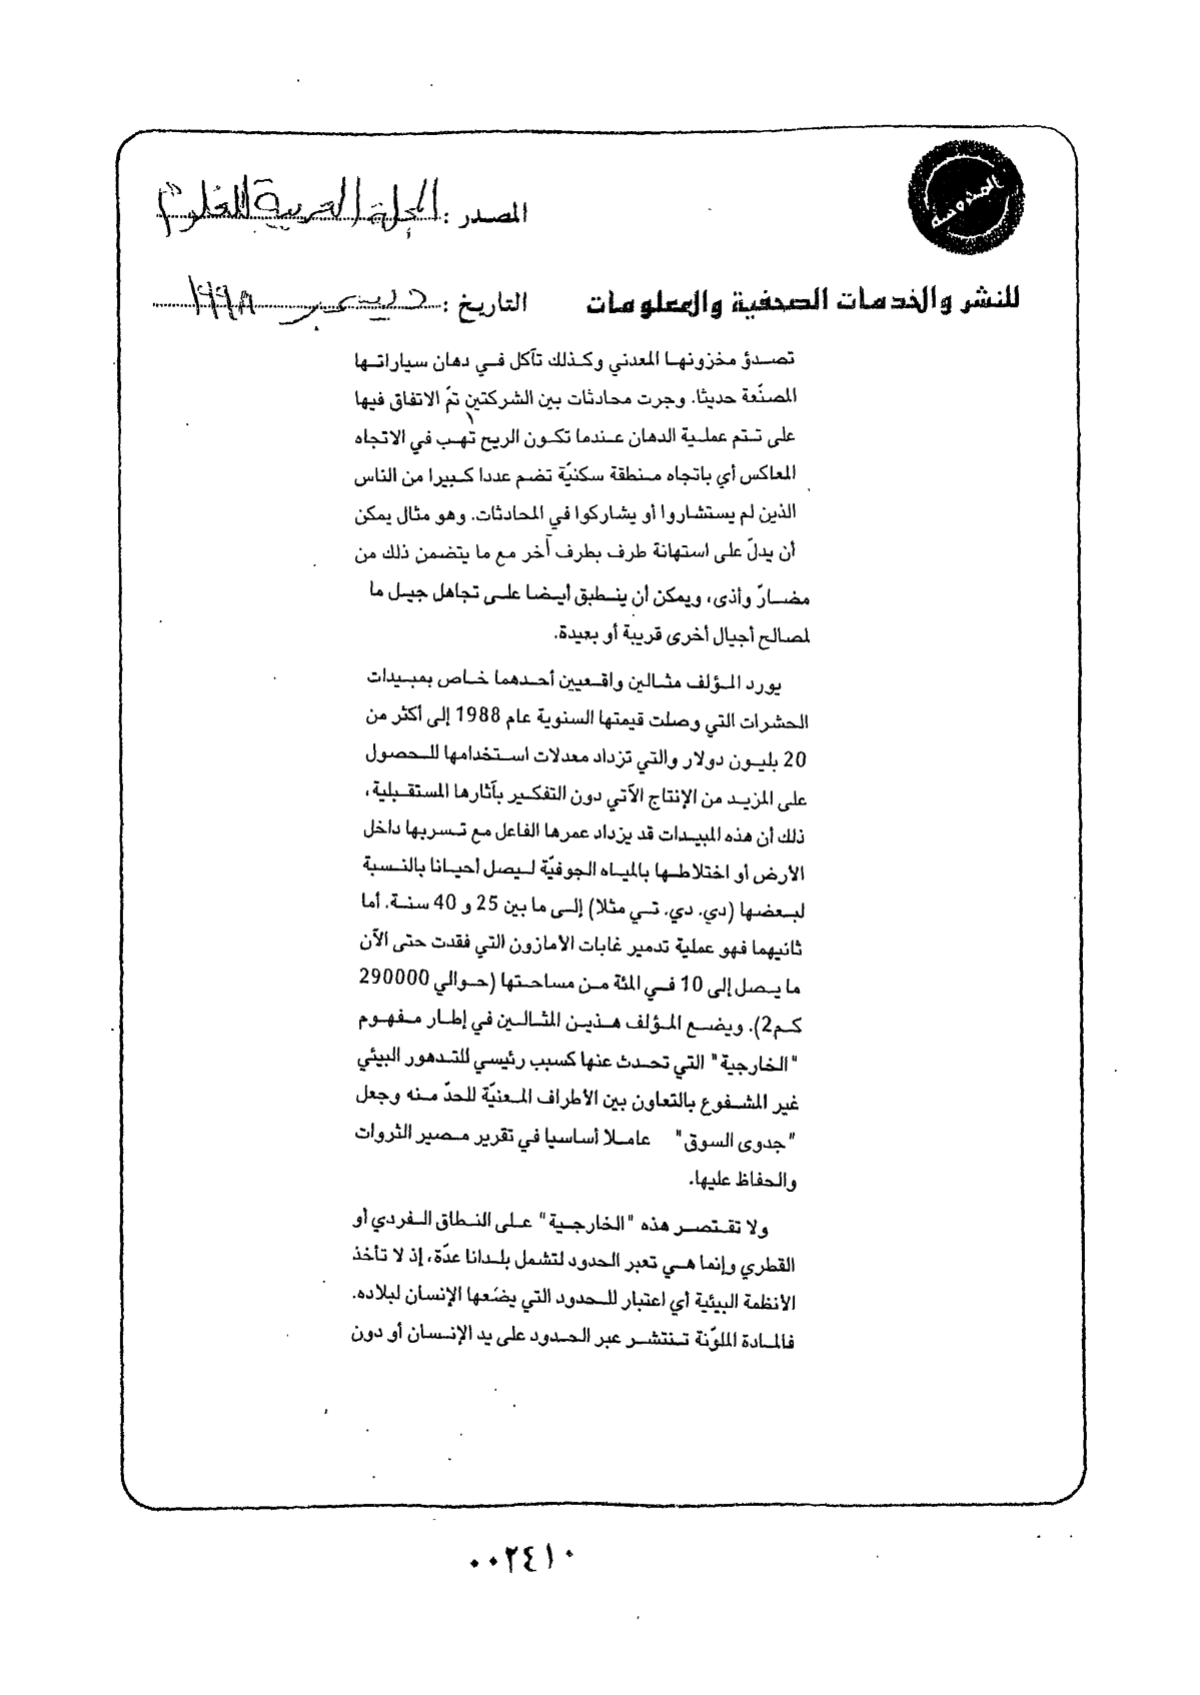 المصدر : المجلة العربية للعلوم
للنشر والخدمات الصحفية والمعلومات
التاريخ : ديسمبر ١٩٩٨
تصدؤ مخزونها المعدني وكذلك تآكل في دهان سياراتها
المصنّعة حديثا. وجرت محادثات بين الشركتين تمّ الاتفاق فيها
على تتم عملية الدهان عندما تكون الريح تهب في الاتجاه
المعاكس أي باتجاه منطقة سكنيّة تضم عددا كبيرا من الناس
الذين لم يستشاروا أو يشاركوا في المحادثات. وهو مثال يمكن
أن يدلّ على استهانة طرف بطرف آخر مع ما يتضمن ذلك من
مضارّ وأذى، ويمكن أن ينطبق أيضا على تجاهل جيل ما
لصالح أجيال أخرى قريبة أو بعيدة.
يورد المؤلف مثالين واقعيين أحدهما خاص بمبيدات
الحشرات التي وصلت قيمتها السنوية عام 1988 إلى أكثر من
20 بليون دولار والتي تزداد معدلات استخدامها للحصول
على المزيد من الإنتاج الآتي دون التفكير بآثارها المستقبلية،
ذلك أن هذه المبيدات قد يزداد عمرها الفاعل مع تسربها داخل
الأرض أو اختلاطها بالمياه الجوفيّة ليصل أحيانا بالنسبة
لبعضها (دي. دي. تي مثلا) إلى ما بين 25 و 40 سنة. أما
ثانيهما فهو عملية تدمير غابات الأمازون التي فقدت حتى الآن
ما يصل إلى 10 في المئة من مساحتها (حوالي 290000
كم2). ويضع المؤلف هذين المثالين في إطار مفهوم
"الخارجية" التي تحدث عنها كسبب رئيسي للتدهور البيئي
غير المشفوع بالتعاون بين الأطراف المعنيّة للحدّ منه وجعل
"جدوى السوق" عاملا أساسيا في تقرير مصير الثروات
والحفاظ عليها.
ولا تقتصر هذه "الخارجية" على النطاق الفردي أو
القطري وإنما هي تعبر الحدود لتشمل بلدانا عدّة، إذ لا تأخذ
الأنظمة البيئية أي اعتبار للحدود التي يضعها الإنسان لبلاده.
فالمادة الملوّنة تنتشر عبر الحدود على يد الإنسان أو دون
٠٠٢٤١٠